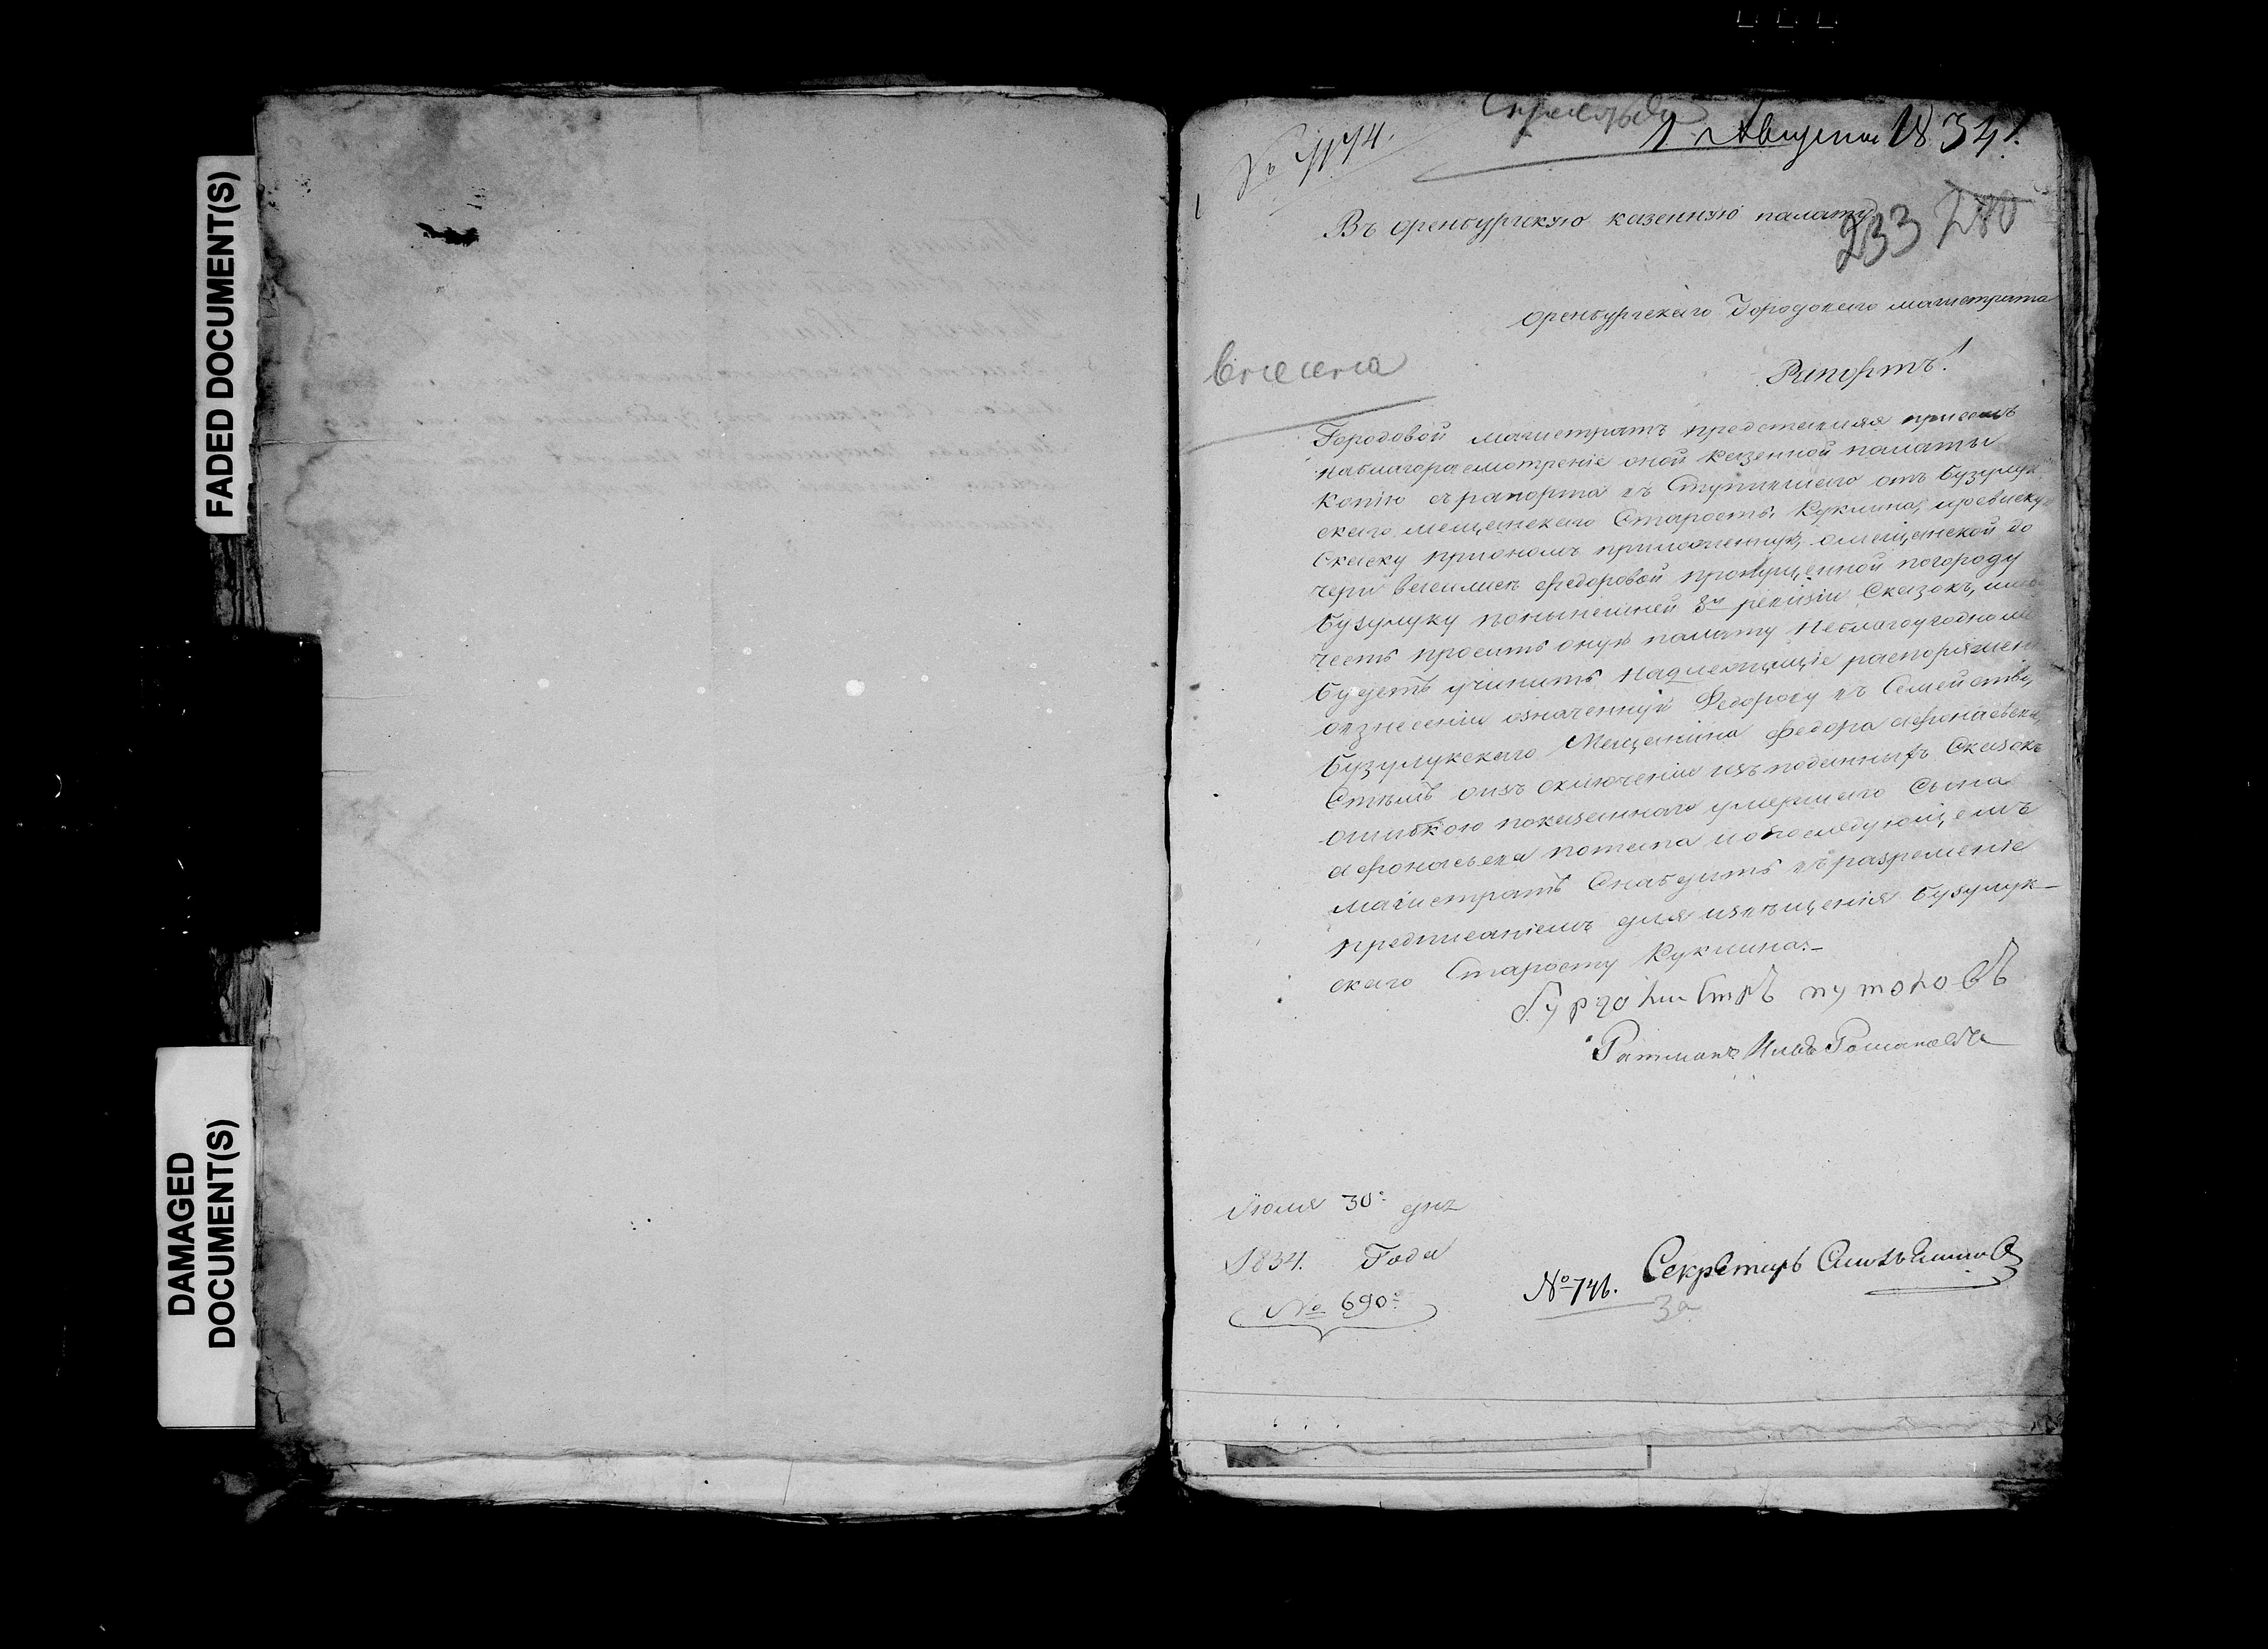 FADED DOCUMENT(S)
DAMAGED
DOCUMENT(S)
1 Августа 1834.
Въ оренбургскую казенную палату
233
оренбургскаго Городоваго магистрата
Рапортъ!
внесена
Городовой магистратъ представляя присемъ
наблагоразсмотреніе оной казенной палаты
копію срапорта въ Ступившаго отъ бузулук
скаго мещанскаго Старосты Куклина, иревиску
Скаску приономъ приложенную, омещанской до
чери Федоровой пропущенной погороду
бузулуку понынешней 8й ревизіи Сказокъ, име
честь просить оную палату неблагоугодноли
будетъ учинить надлежащіе распоряжен
овнесеніи означенную Федорову въ Семейство,
бузулукскаго Мещанина Федора афонасьева,
Стемъ объ сключеніи изъ поданныхъ Сказокъ
ошибкою показаннаго умершаго Сына
афонасьева потапа ипоследующемъ
магистратъ Снабдить въ разрешеніе
предписаніемъ для извещенія бузулук-
скаго Старосту Куклина.-
бургомистръ путоловъ
Ратманъ
Июля 30. дня
1834. Года
№ 690.
№ 746. Секретарь